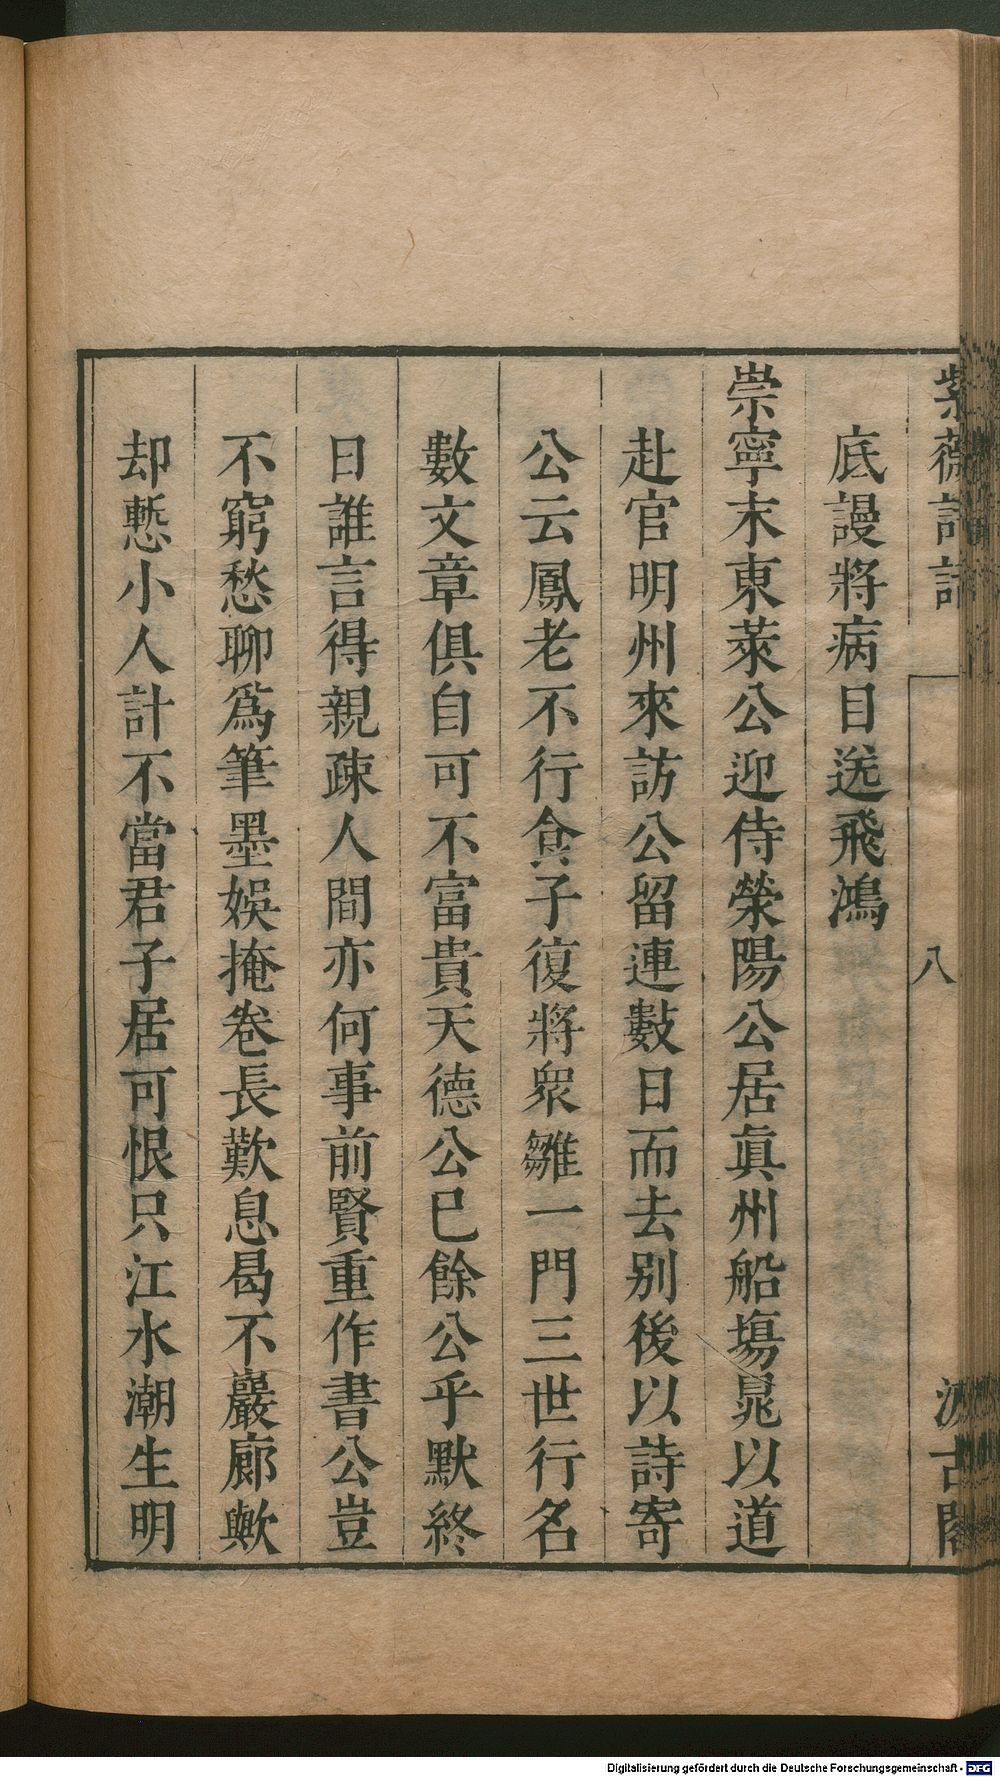 紫薇詩話 八 汲古閣
底謾將病目送飛鴻
崇寧末東萊公迎侍滎陽公居眞州船塲晁以道
赴官明州來訪公留連數日而去别後以詩寄
公云鳳老不行食子復將衆雛一門三世行名
數文章俱自可不富貴天德公已餘公乎默終
日誰言得親疎人間亦何事前賢重作書公豈
不窮愁聊爲筆墨娛掩卷長歎息曷不巖廊歟
却慙小人計不當君子居可恨只江水潮生明
Digitalisierung gefördert durch die Deutsche Forschungsgemeinschaft - DFG